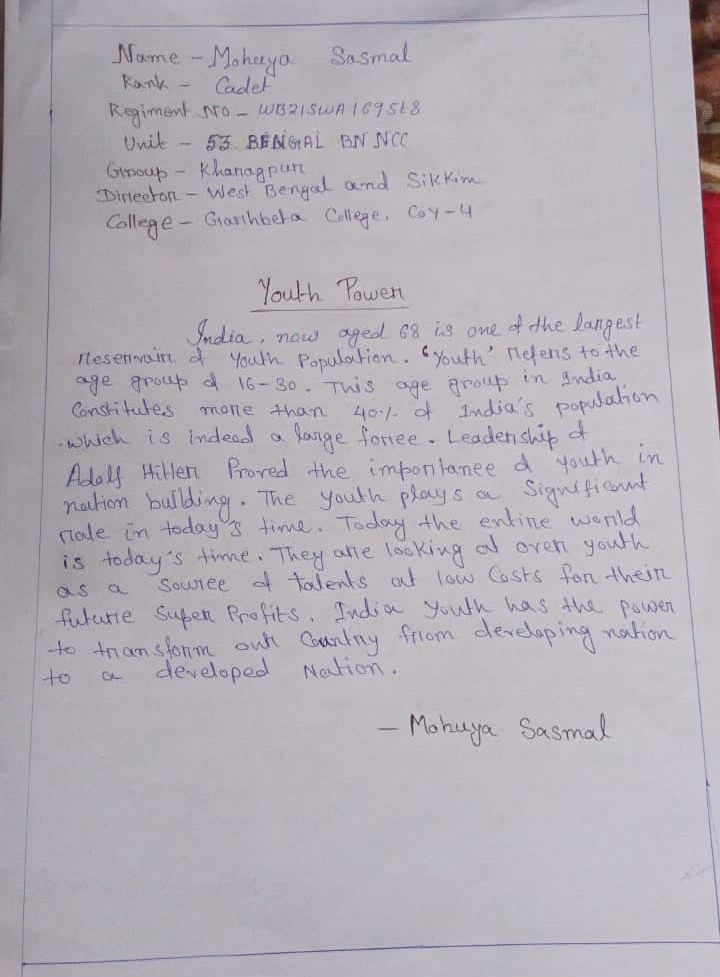 Name - Mohuya Sasmal
Rank - Cadet
Regiment NO - WB21SWA169568
Unit - 53 BENGAL BN NCC
Group - Kharagpur
Director - West Bengal and Sikkim
College - Garhbeta College. Coy-4
Youth Power
India, now aged 68 is one of the largest
reservair of Youth Population. 'Youth' refers to the
age group of 16-30. This age group in India
Constitutes more than 40% of India's population
which is indeed a large force. Leadership of
Adolf Hitler Proved the importance of youth in
nation building. The youth plays a Significant
role in today's time. Today the entire world
is today's time. They are looking at over youth
as a source of talents at low Costs for their
future Super Profits. India Youth has the power
to transform our Country from developing nation
to a developed Nation.
- Mohuya Sasmal